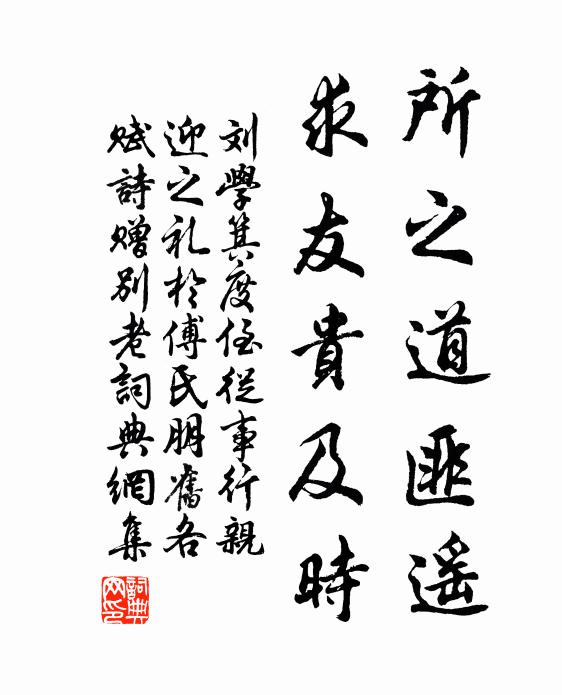 所之道匪遥
求友貴及時
刘學箕度侄從事行親
迎之礼於傅氏朋舊各
赋詩赠别老詞典網集
詞典网印